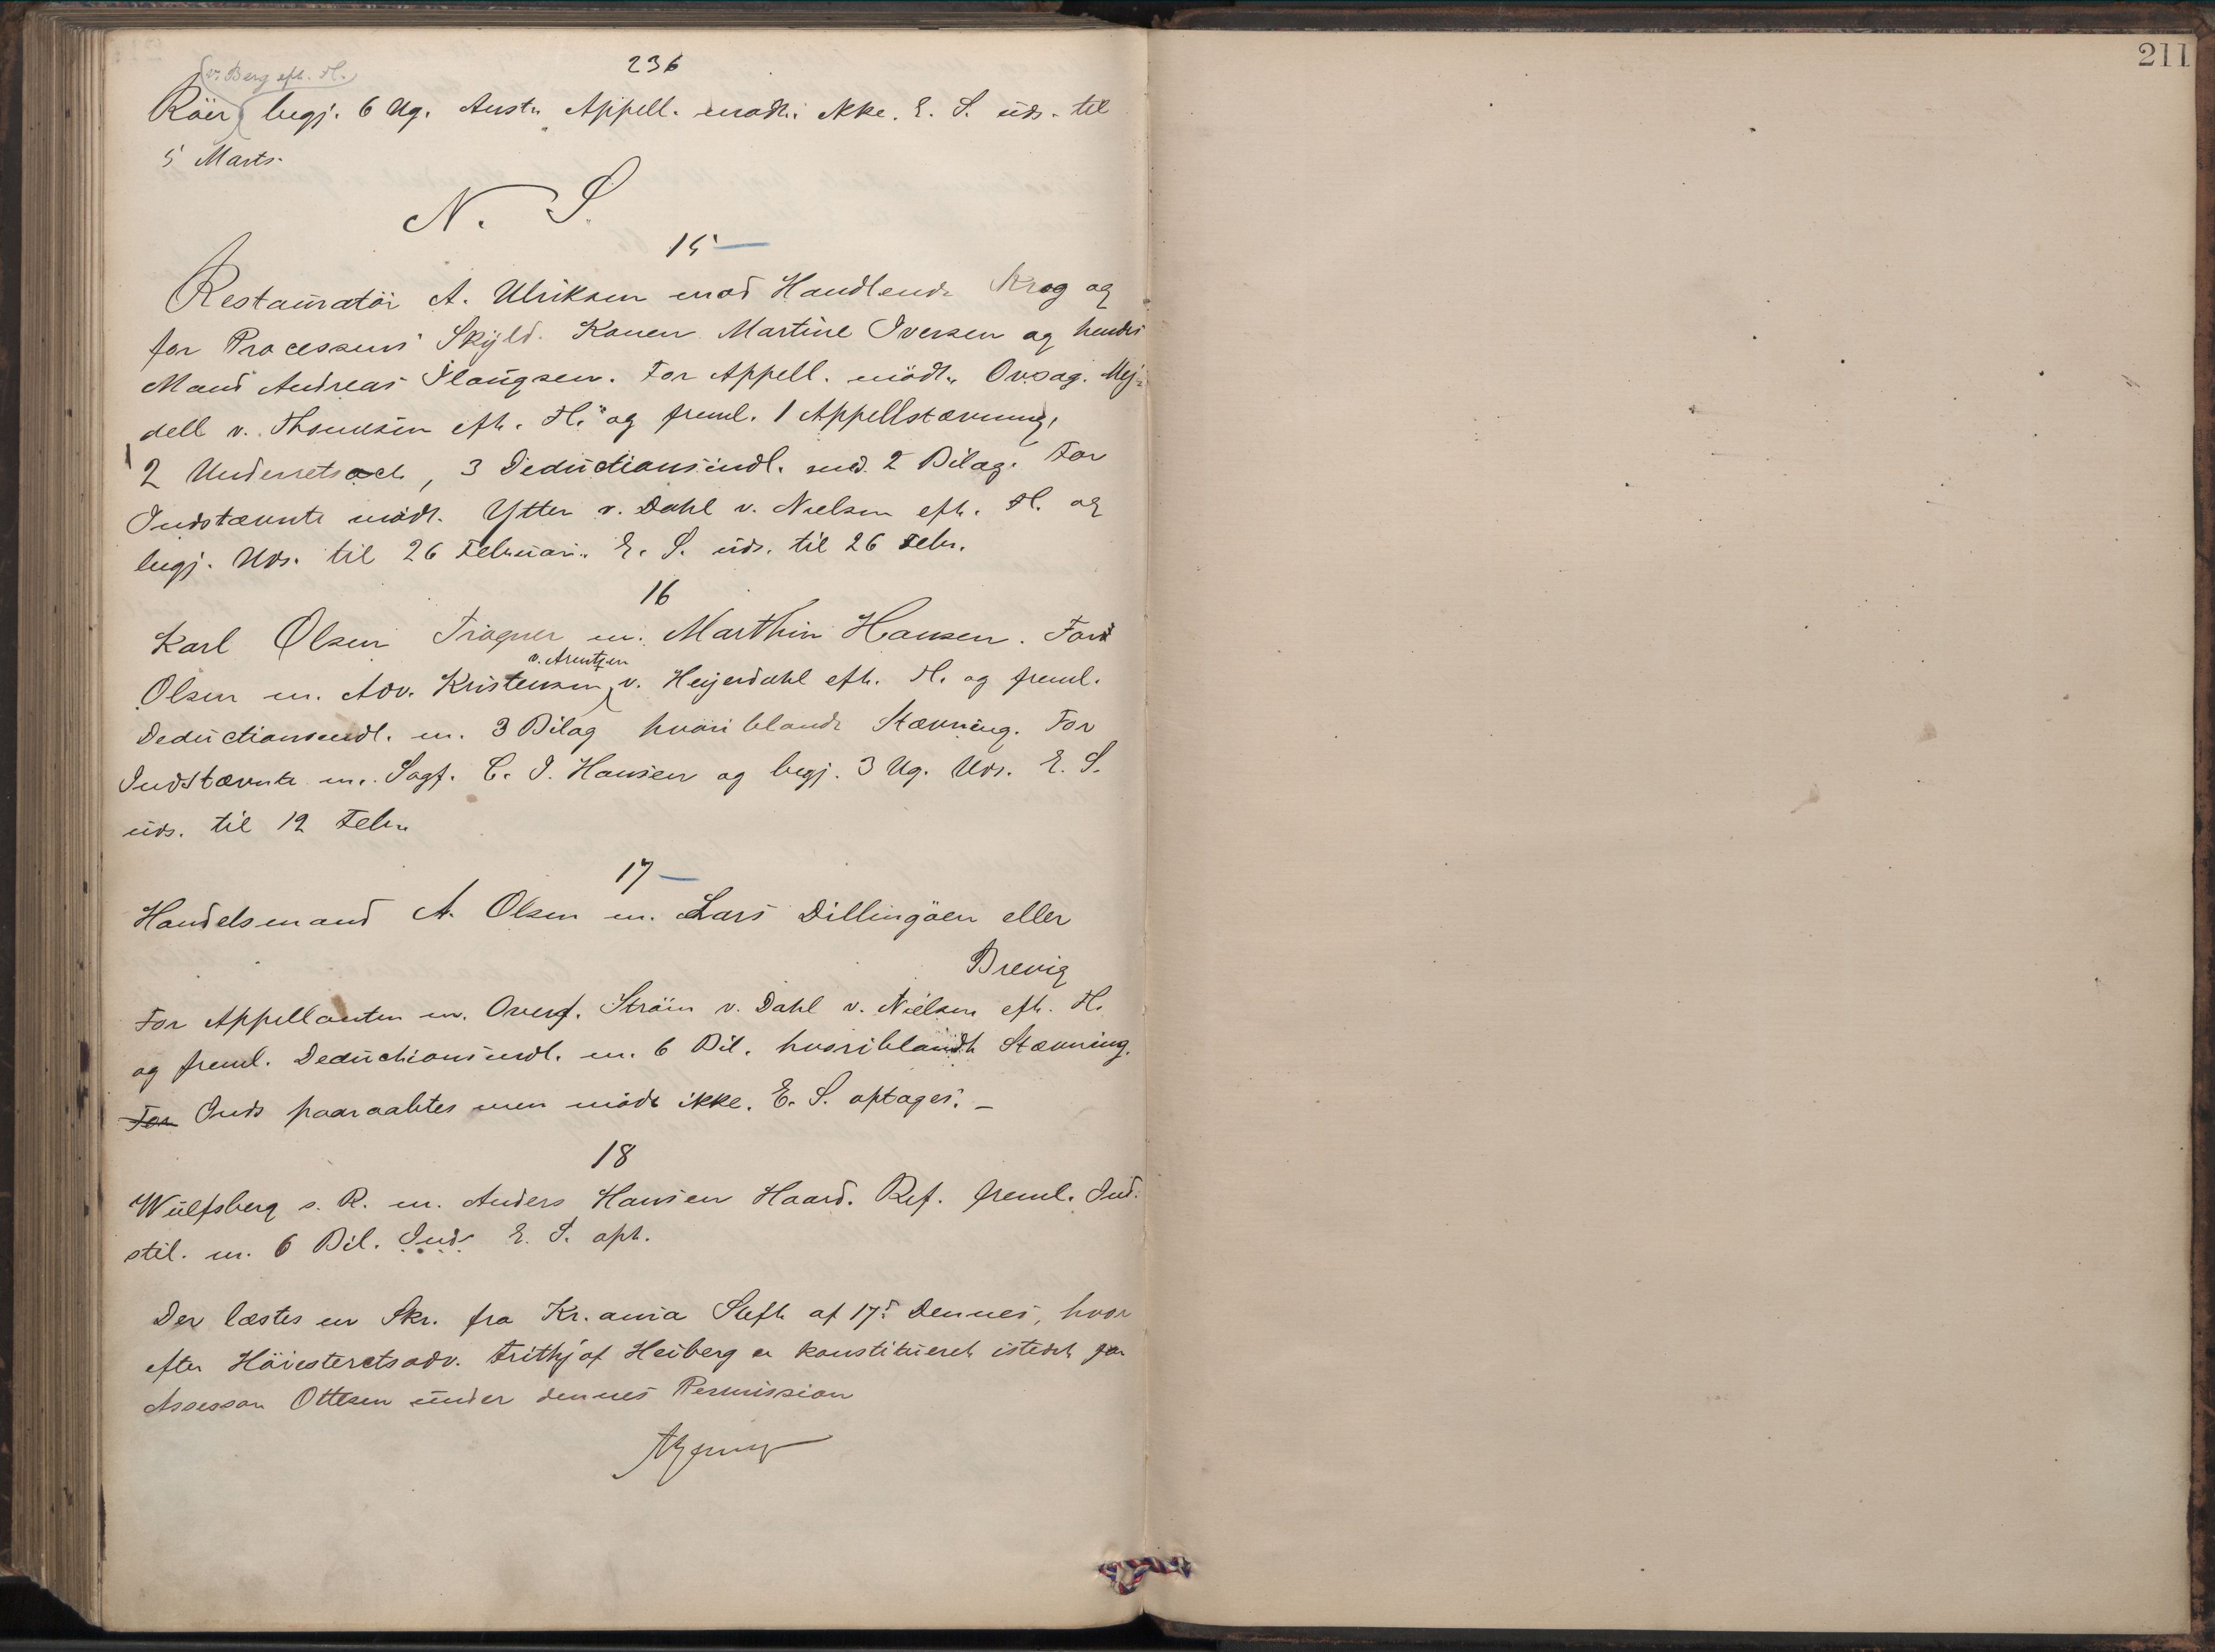 236
(v. Berg efh. H.)
Röer begj. 6 Ug. Anst. Appell. mödte ikke. E. S. uds. til
5 Marts.
N. S.
15
Restauratör A. Ulriksen mod Handlende Krog og
for Processens Skyld. Konen Martine Iversen og hendes
Mand Andreas Ilaugsen. For Appell. mödte Ovsag. Mej-
dell v. Thomesen efh. H. og freml. 1 Appellstævning,
2 Underretsact, 3 Deductionsindl. med 2 Bilag. For
Indstævnte mödt. Ytter v. Dahl v. Nielsen efh. H. og
begj. Uds. til 26 Februar. E. S. uds. til 26 Febr.
16
Karl Olsen Tragner m. Marthin Hansen. For
v. Arentzen
Olsen m. Adv. Kristensen v. Heyerdahl efh. H. og freml.
Deductionsindl. m. 3 Bilag hvoriblandt Stævning. For
Indstævnte m. Sagf. C. J. Hansen og begj. 3 Ug. Uds. E. S.
uds. til 12 Febr.
17
Handelsmand A. Olsen m. Lars Dillingöen eller
Brevig
For Appellanten m. Overf. Ström v. Dahl v. Nielsen efh. H.
og freml. Deductionsindl. m. 6 Bil. hvoriblandt Stævning.
For Inds paaraabtes men mödt ikke. E. S. optages. –
18
Wulfsberg s. R. m. Anders Hansen Haard. Ref. freml. Ind-
stil. m. 6 Bil. Inds E. S. opt.
Der læstes en Skr. fra Kr.ania Stift af 17de Dennes, hvor
efter Höiesteretsadv. Frithjof Heiberg er konstitueret istedet for
Assessor Ottesen under dennes Permission
211